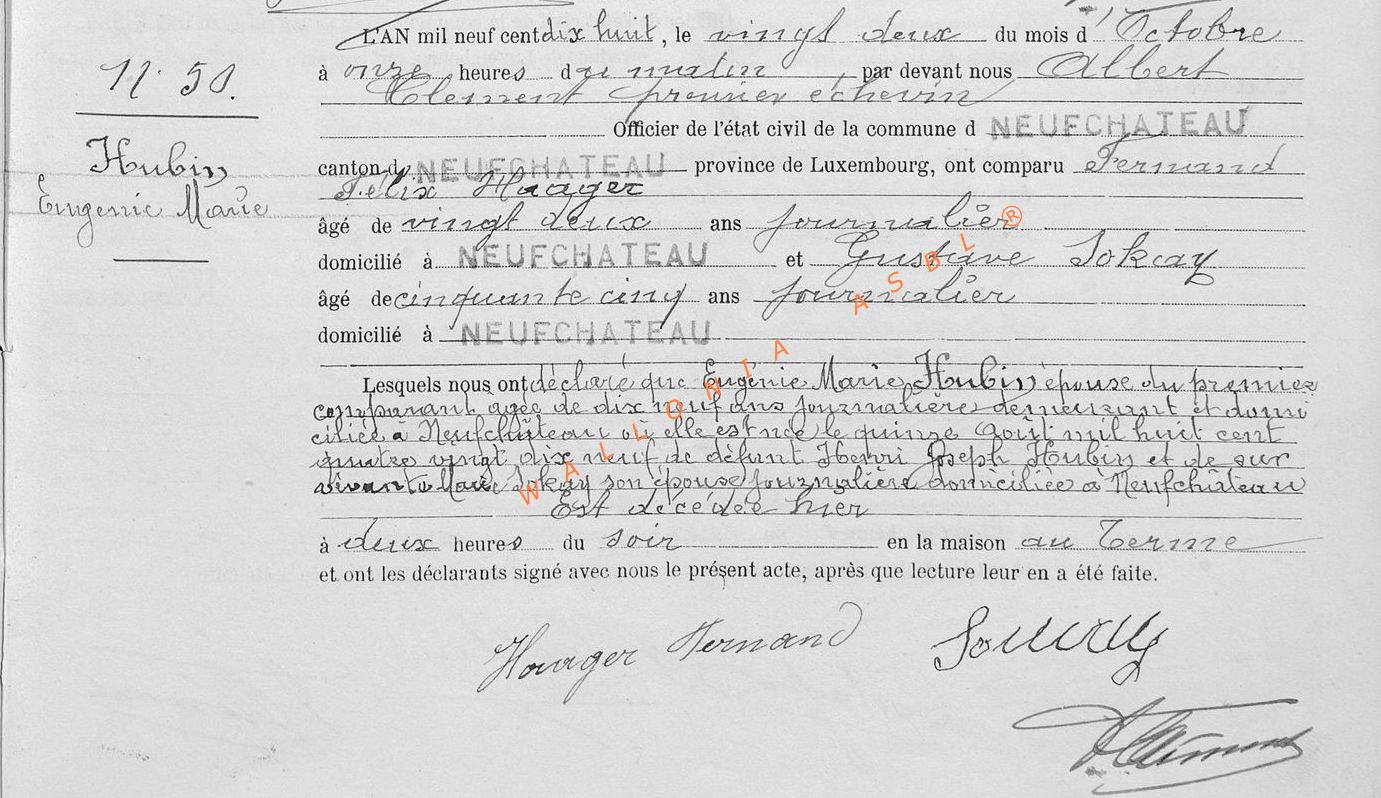 N° 50.
Hubin
Eugénie Marie
L'AN mil neuf cent dix huit, le vingt deux du mois d' Octobre
à onze heures du matin, par devant nous Albert
Clement premier échevin
Officier de l'état civil de la commune d NEUFCHATEAU
canton d NEUFCHATEAU province de Luxembourg, ont comparu Fernand
Félix Haager
âgé de vingt deux ans journalier
domicilié à NEUFCHATEAU et Gustave Sokay
âgé de cinquante cinq ans journalier
domicilié à NEUFCHATEAU
Lesquels nous ont déclaré que Eugénie Marie Hubin épouse du premier
comparant âgée de dix neuf ans journalière demeurant et domi
ciliée à Neufchâteau où elle est née le quinze Août mil huit cent
quatre vingt dix neuf de défunt Henri Joseph Hubin et de sur
vivante Marie Sokay son épouse journalière domiciliée à Neufchâteau
Est décédée hier
à deux heures du soir en la maison au Terme
et ont les déclarants signé avec nous le présent acte, après que lecture leur en a été faite.
Haager Fernand
WALLONIA ASBL ®